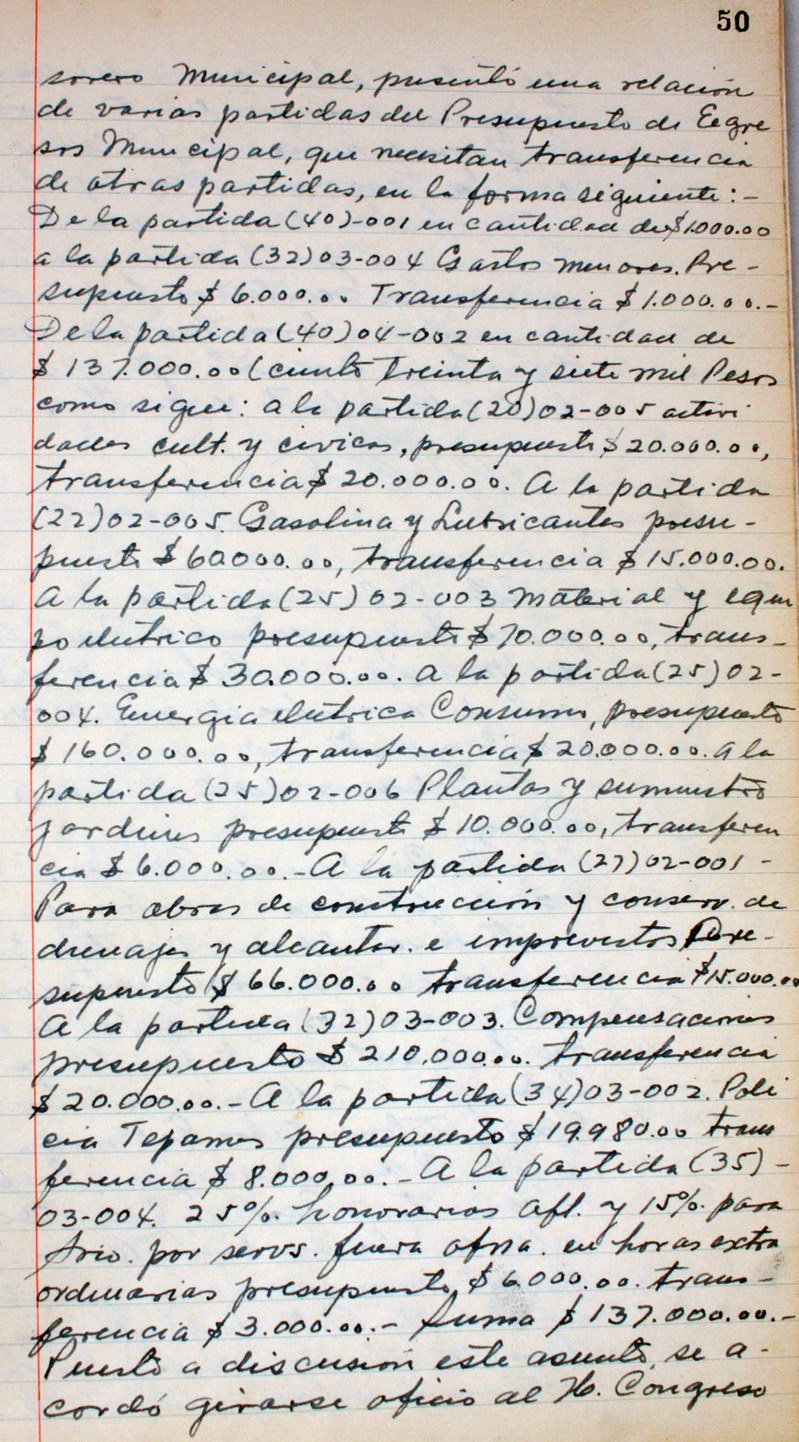 50
sorero Municipal, presentó una relación
de varias partidas del Presupuesto de Egre
sos Municipal, que necesitan transferencia
de otras partidas, en la forma siguiente:-
De la partida (40)-001 en cantidad de $1.000.00
a la partida (32)03-004 Gastos menores. Pre-
supuesto $ 6.000.00 Transferencia $ 1.000.00.-
De la partida (40)04-002 en cantidad de
$ 137.000.00 (ciento treinta y siete mil Pesos
como sigue: a la partida (20)02-005 activi
dades cult. y civicas, presupuesto $ 20.000.00,
transferencia $ 20.000.00. A la partida
(22)02-005. Gasolina y Lubricantes presu-
puesto $ 60000.00, transferencia $ 15.000.00.
A la partida (25)02-003 Material y equi
po electrico presupuesto $ 70.000.00, trans-
ferencia $ 30.000.00. A la partida (25)02-
004. Energia electrica Consumo, presupuesto
$ 160.000.00, transferencia $ 20.000.00. A la
partida (25)02-006 Plantas y sumnistro
jardines presupuesto $ 10.000.00, transferen
cia $ 6.000.00.- A la partida (27)02-001-
Para obras de construcción y conserv. de
drenajes y alcantar. e imprevistos Pre-
supuesto $ 66.000.00 transferencia $15.000.00
A la partida (32)03-003. Compensaciones
presupuesto $ 210.000.00. transferencia
$ 20.000.00.- A la partida (34)03-002. Poli
cia Tepames presupuesto $ 19.980.00 trans
ferencia $ 8.000.00.- A la partida (35)-
03-004. 25%. honorarios afl. y 15%. para
Srio. por servs. fuera ofna. en horas extra
ordinarias presupuesto $ 6.000.00. trans-
ferencia $ 3.000.00.- Suma $ 137.000.00.-
Puesto a discusión este asunto, se a-
cordó girarse oficio al H. Congreso